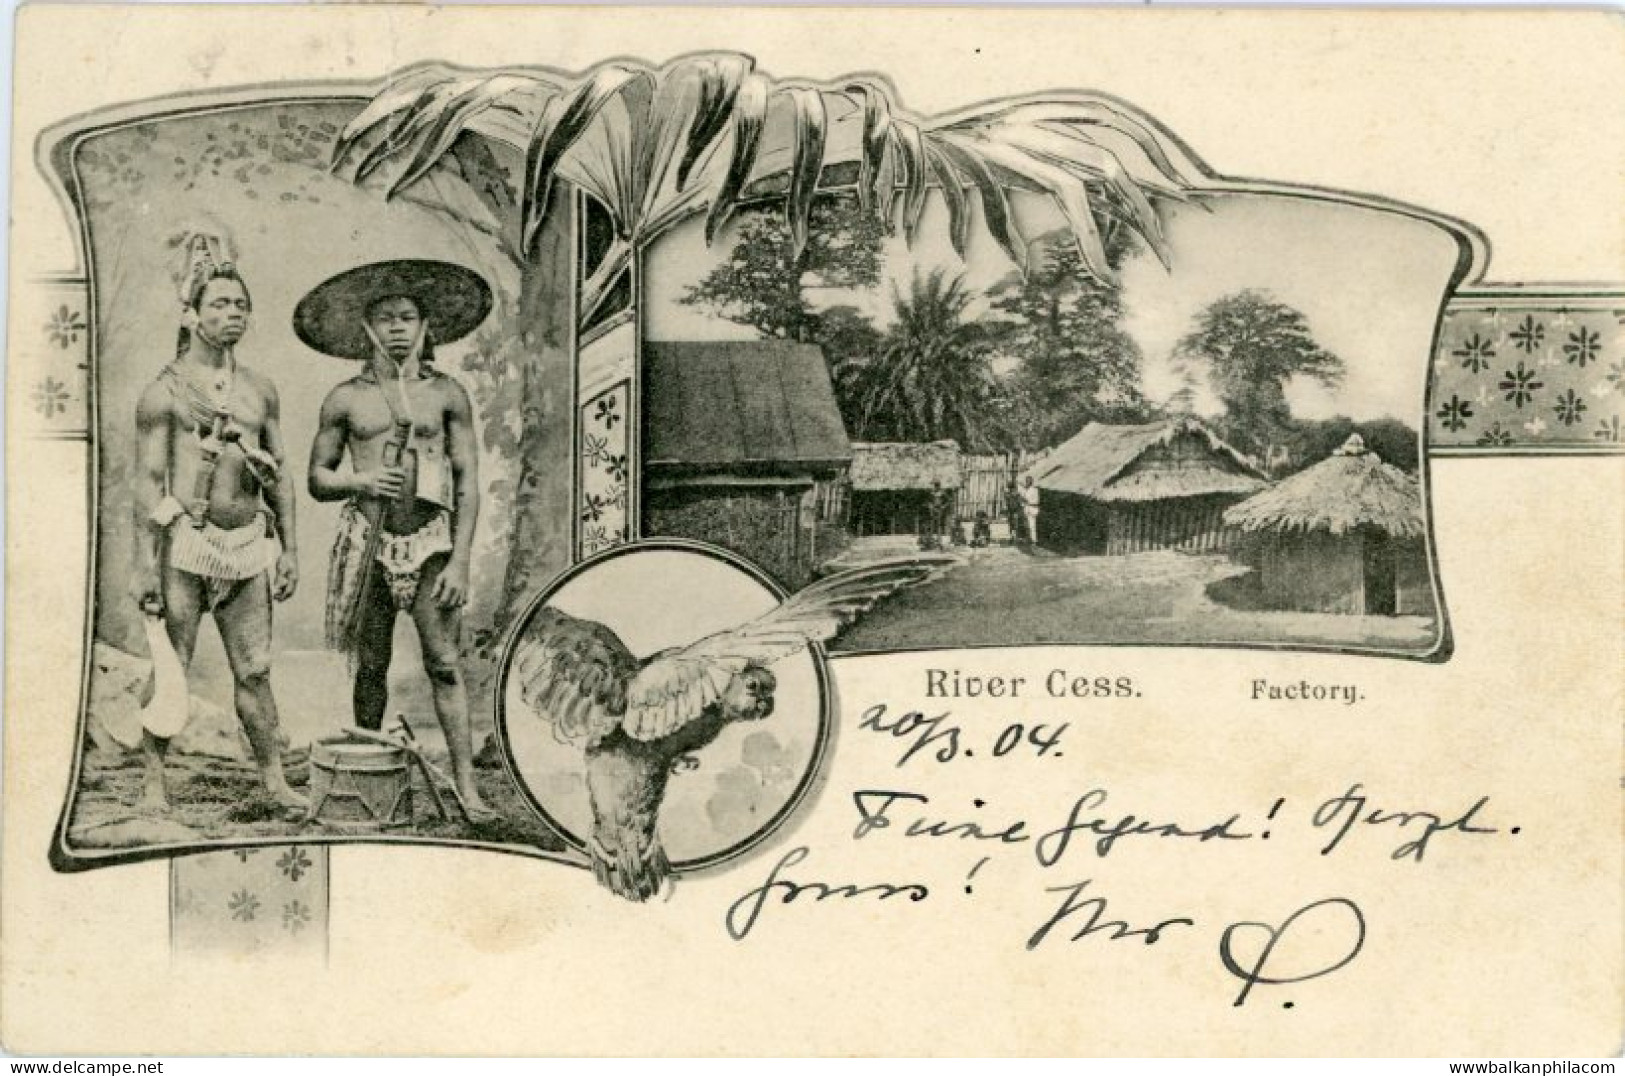 River Cess. Factory.
20/3.04.
Feine Gegend! Herzl.
Gruss!
Posted for sale on DELCAMPE.net
wwwbalkanphilacom